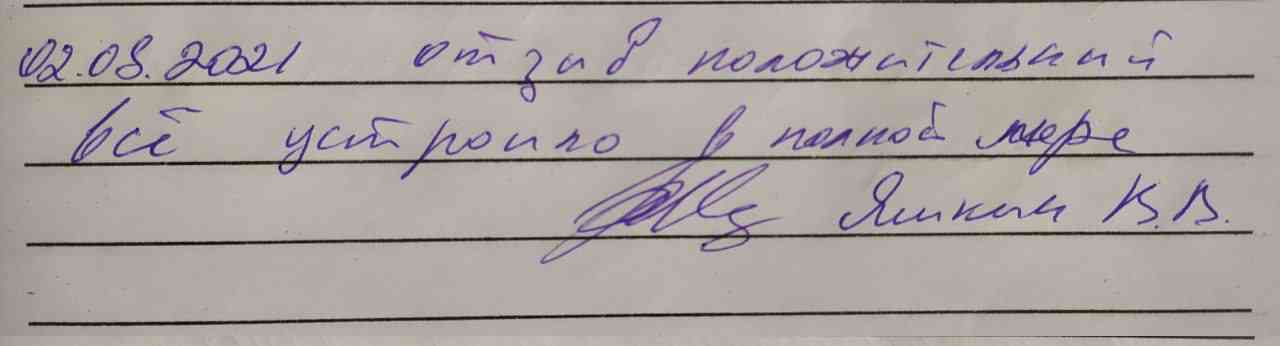 02.08.2021 отзыв положительный
всё устроило в полной мере
Яшкин В.В.